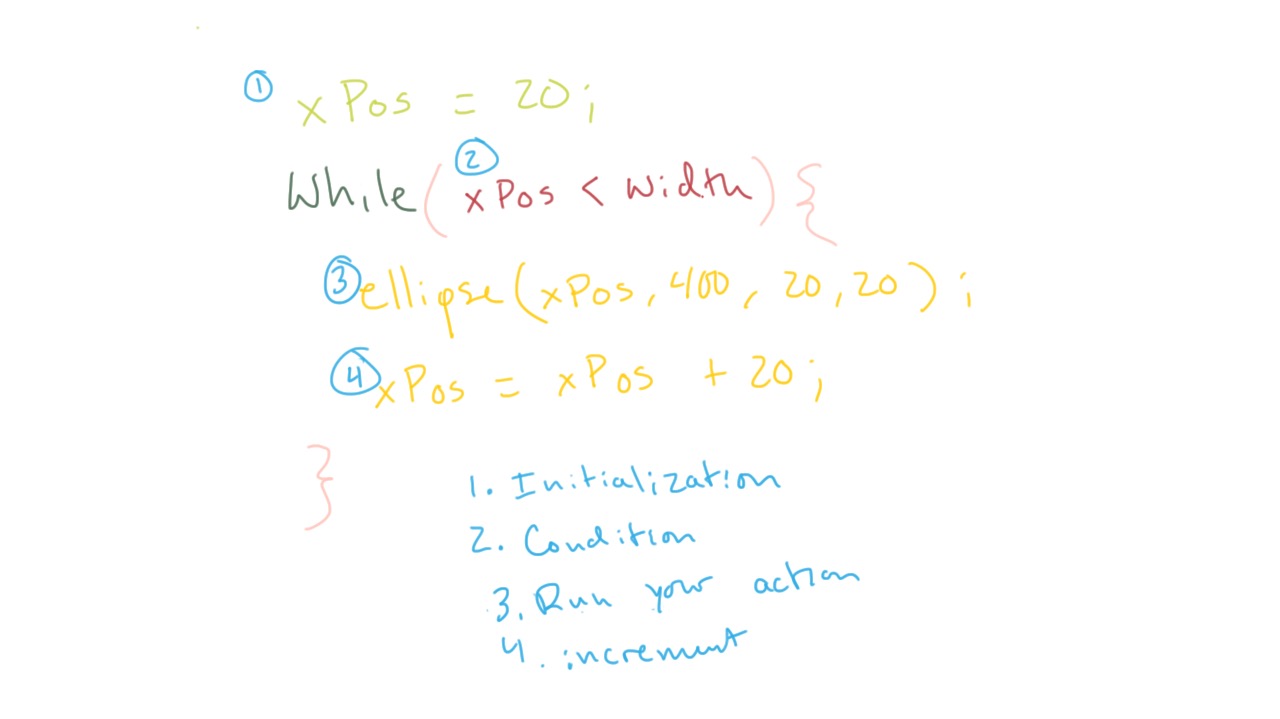 ① xPos = 20;
While( ② xPos < width) {
③ ellipse(xPos, 400, 20, 20);
④ xPos = xPos + 20;
}
1. Initialization
2. Condition
3. Run your action
4. increment